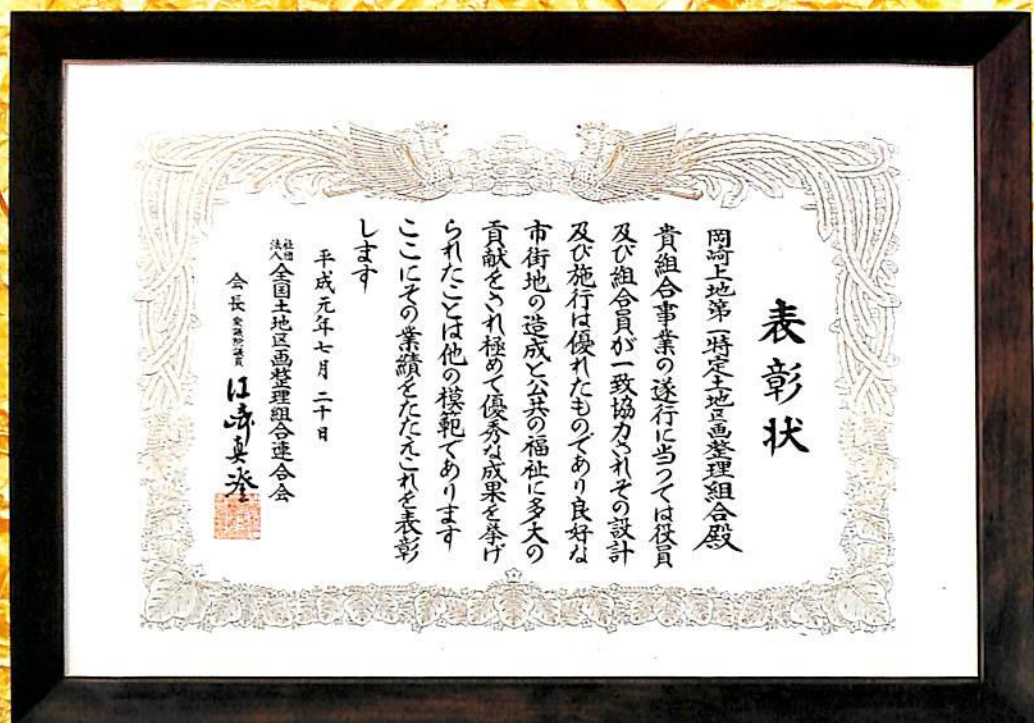 表彰状
岡崎上地第一特定土地区画整理組合殿
貴組合事業の遂行に当つては役員
及び組合員が一致協力されその設計
及び施行は優れたものであり良好な
市街地の造成と公共の福祉に多大の
貢献をされ極めて優秀な成果を挙げ
られたことは他の模範であります
ここにその業績をたたえこれを表彰
します
平成元年七月二十日
社団法人全国土地区画整理組合連合会
会長 衆議院議員 江崎真澄